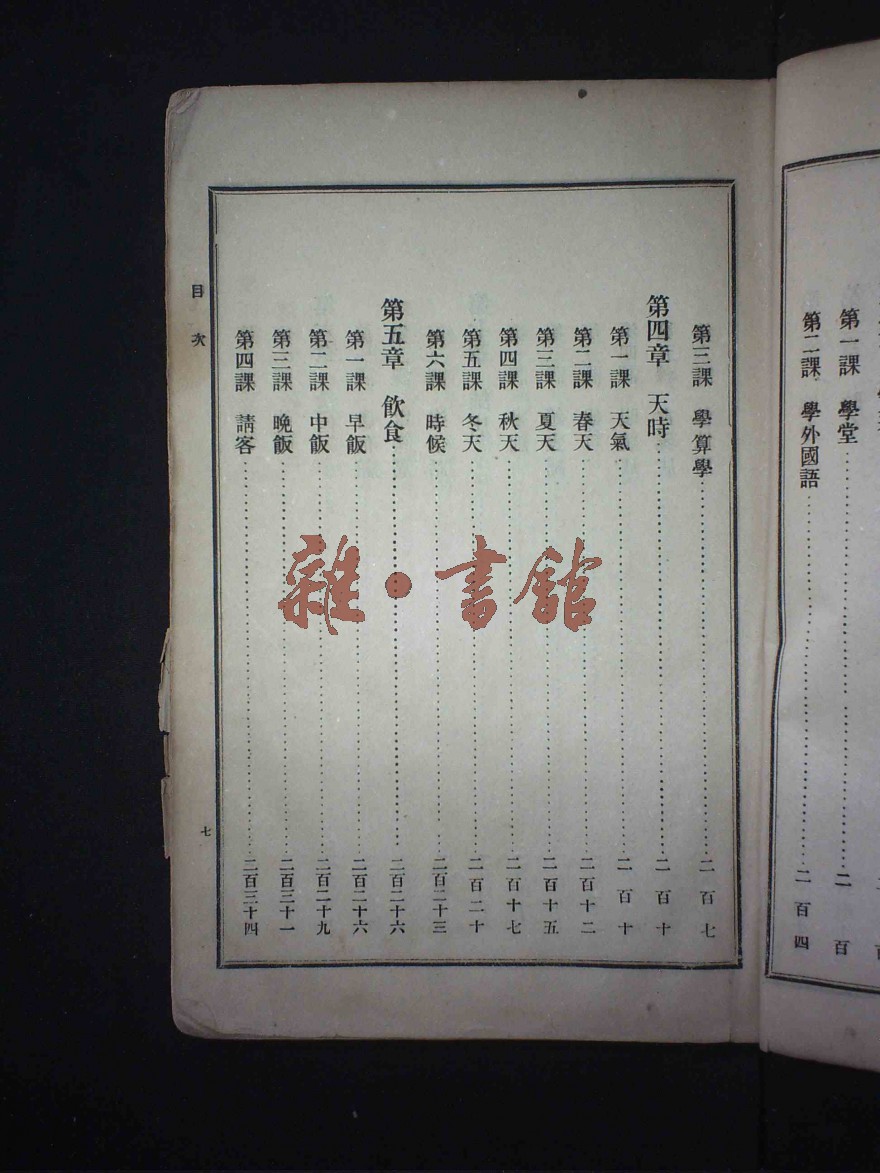 第一課　學堂……二百
第二課　學外國語……二百四
第三課　學算學……二百七
第四章　天時……二百十
第一課　天氣……二百十
第二課　春天……二百十二
第三課　夏天……二百十五
第四課　秋天……二百十七
第五課　冬天……二百二十
第六課　時候……二百二十三
第五章　飲食……二百二十六
第一課　早飯……二百二十六
第二課　中飯……二百二十九
第三課　晚飯……二百三十一
第四課　請客……二百三十四
目次
七
雜·書館